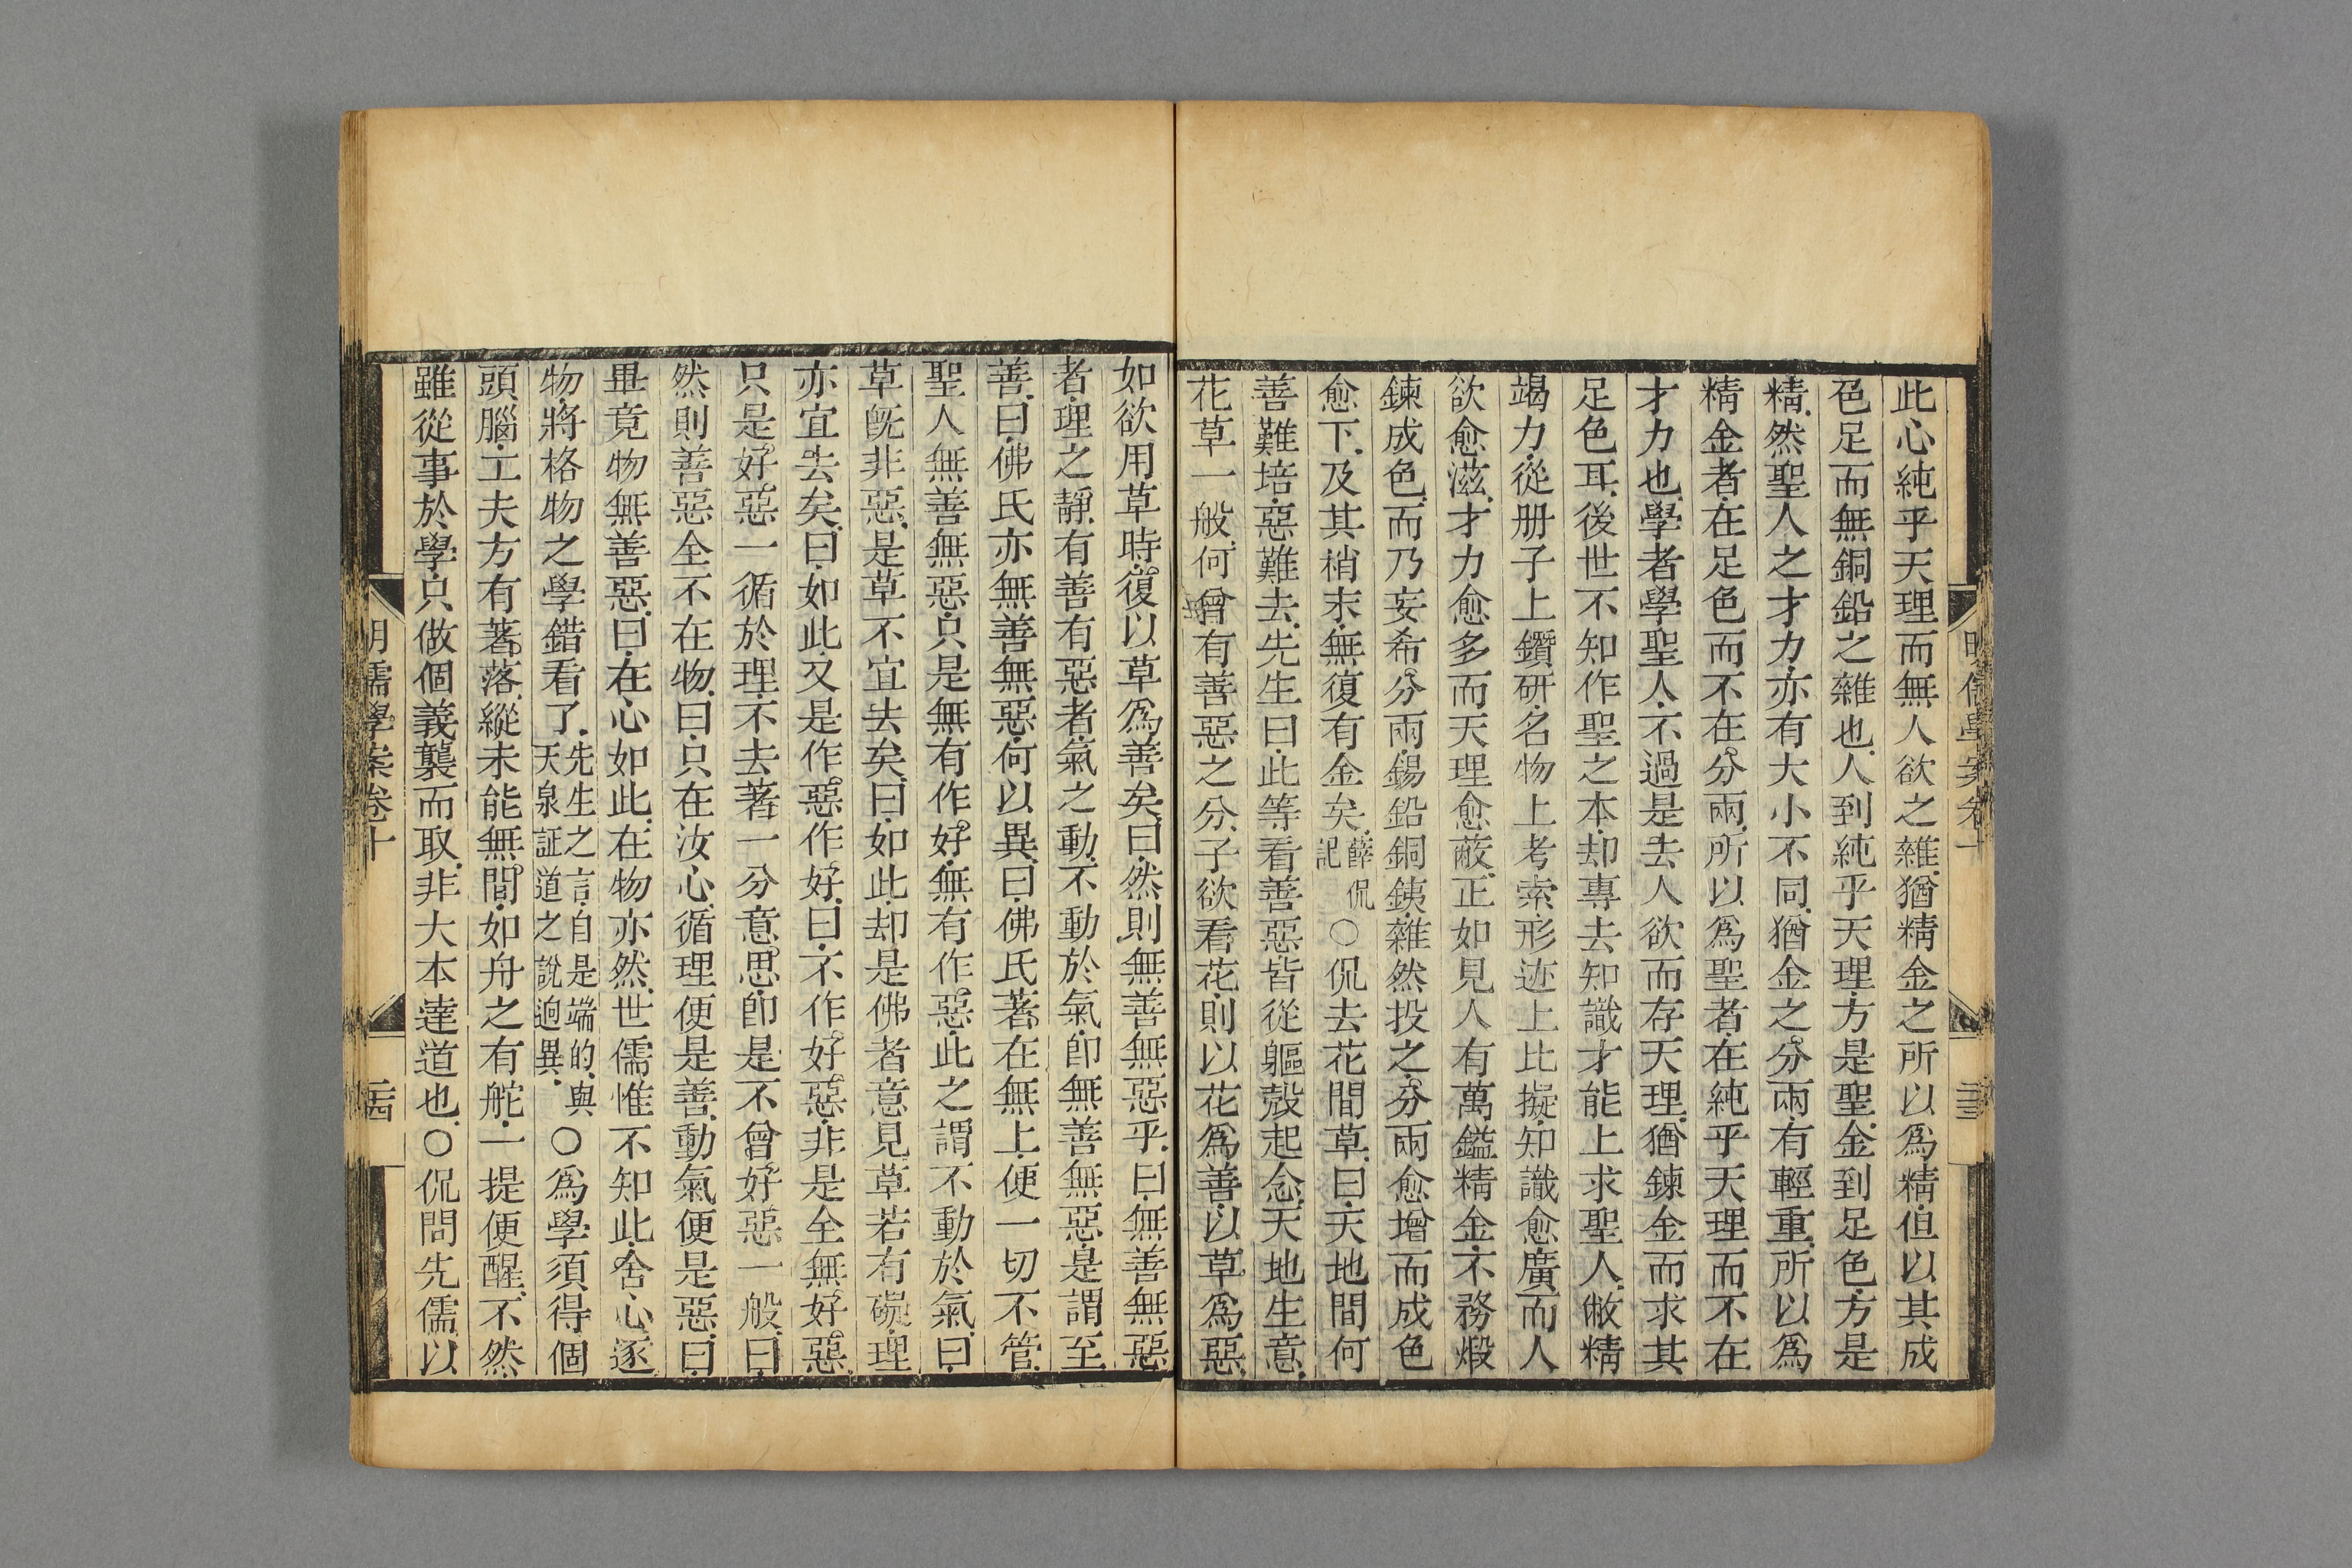 此心純乎天理而無人欲之雜猶精金之所以爲精但以其成
色足而無銅鉛之雜也人到純乎天理方是聖金到足色方是
精然聖人之才力亦有大小不同猶金之分兩有輕重所以爲
精金者在足色而不在分兩所以爲聖者在純乎天理而不在
才力也學者學聖人不過是去人欲而存天理猶鍊金而求其
足色耳後世不知作聖之本却專去知識才能上求聖人敝精
竭力從册子上鑽研名物上考索形迹上比擬知識愈廣而人
欲愈滋才力愈多而天理愈蔽正如見人有萬鎰精金不務煅
鍊成色而乃妄希分兩錫鉛銅鐵雜然投之分兩愈增而成色
愈下及其梢末無復有金矣薛侃記○侃去花間草曰天地間何
善難培惡難去先生曰此等看善惡皆從軀殼起念天地生意
花草一般何曾有善惡之分子欲看花則以花爲善以草爲惡
如欲用草時復以草爲善矣曰然則無善無惡乎曰無善無惡
者理之靜有善有惡者氣之動不動於氣即無善無惡是謂至
善曰佛氏亦無善無惡何以異曰佛氏著在無上便一切不管
聖人無善無惡只是無有作好無有作惡此之謂不動於氣曰
草旣非惡是草不宜去矣曰如此却是佛老意見草若有礙理
亦宜去矣曰如此又是作惡作好曰不作好惡非是全無好惡
只是好惡一循於理不去著一分意思即是不曾好惡一般曰
然則善惡全不在物曰只在汝心循理便是善動氣便是惡曰
畢竟物無善惡曰在心如此在物亦然世儒惟不知此舍心逐
物將格物之學錯看了先生之言自是端的與天泉証道之說迥異○爲學須得個
頭腦工夫方有著落縱未能無間如舟之有舵一提便醒不然
雖從事於學只做個義襲而取非大本達道也○侃問先儒以
明儒學案卷十
二十四